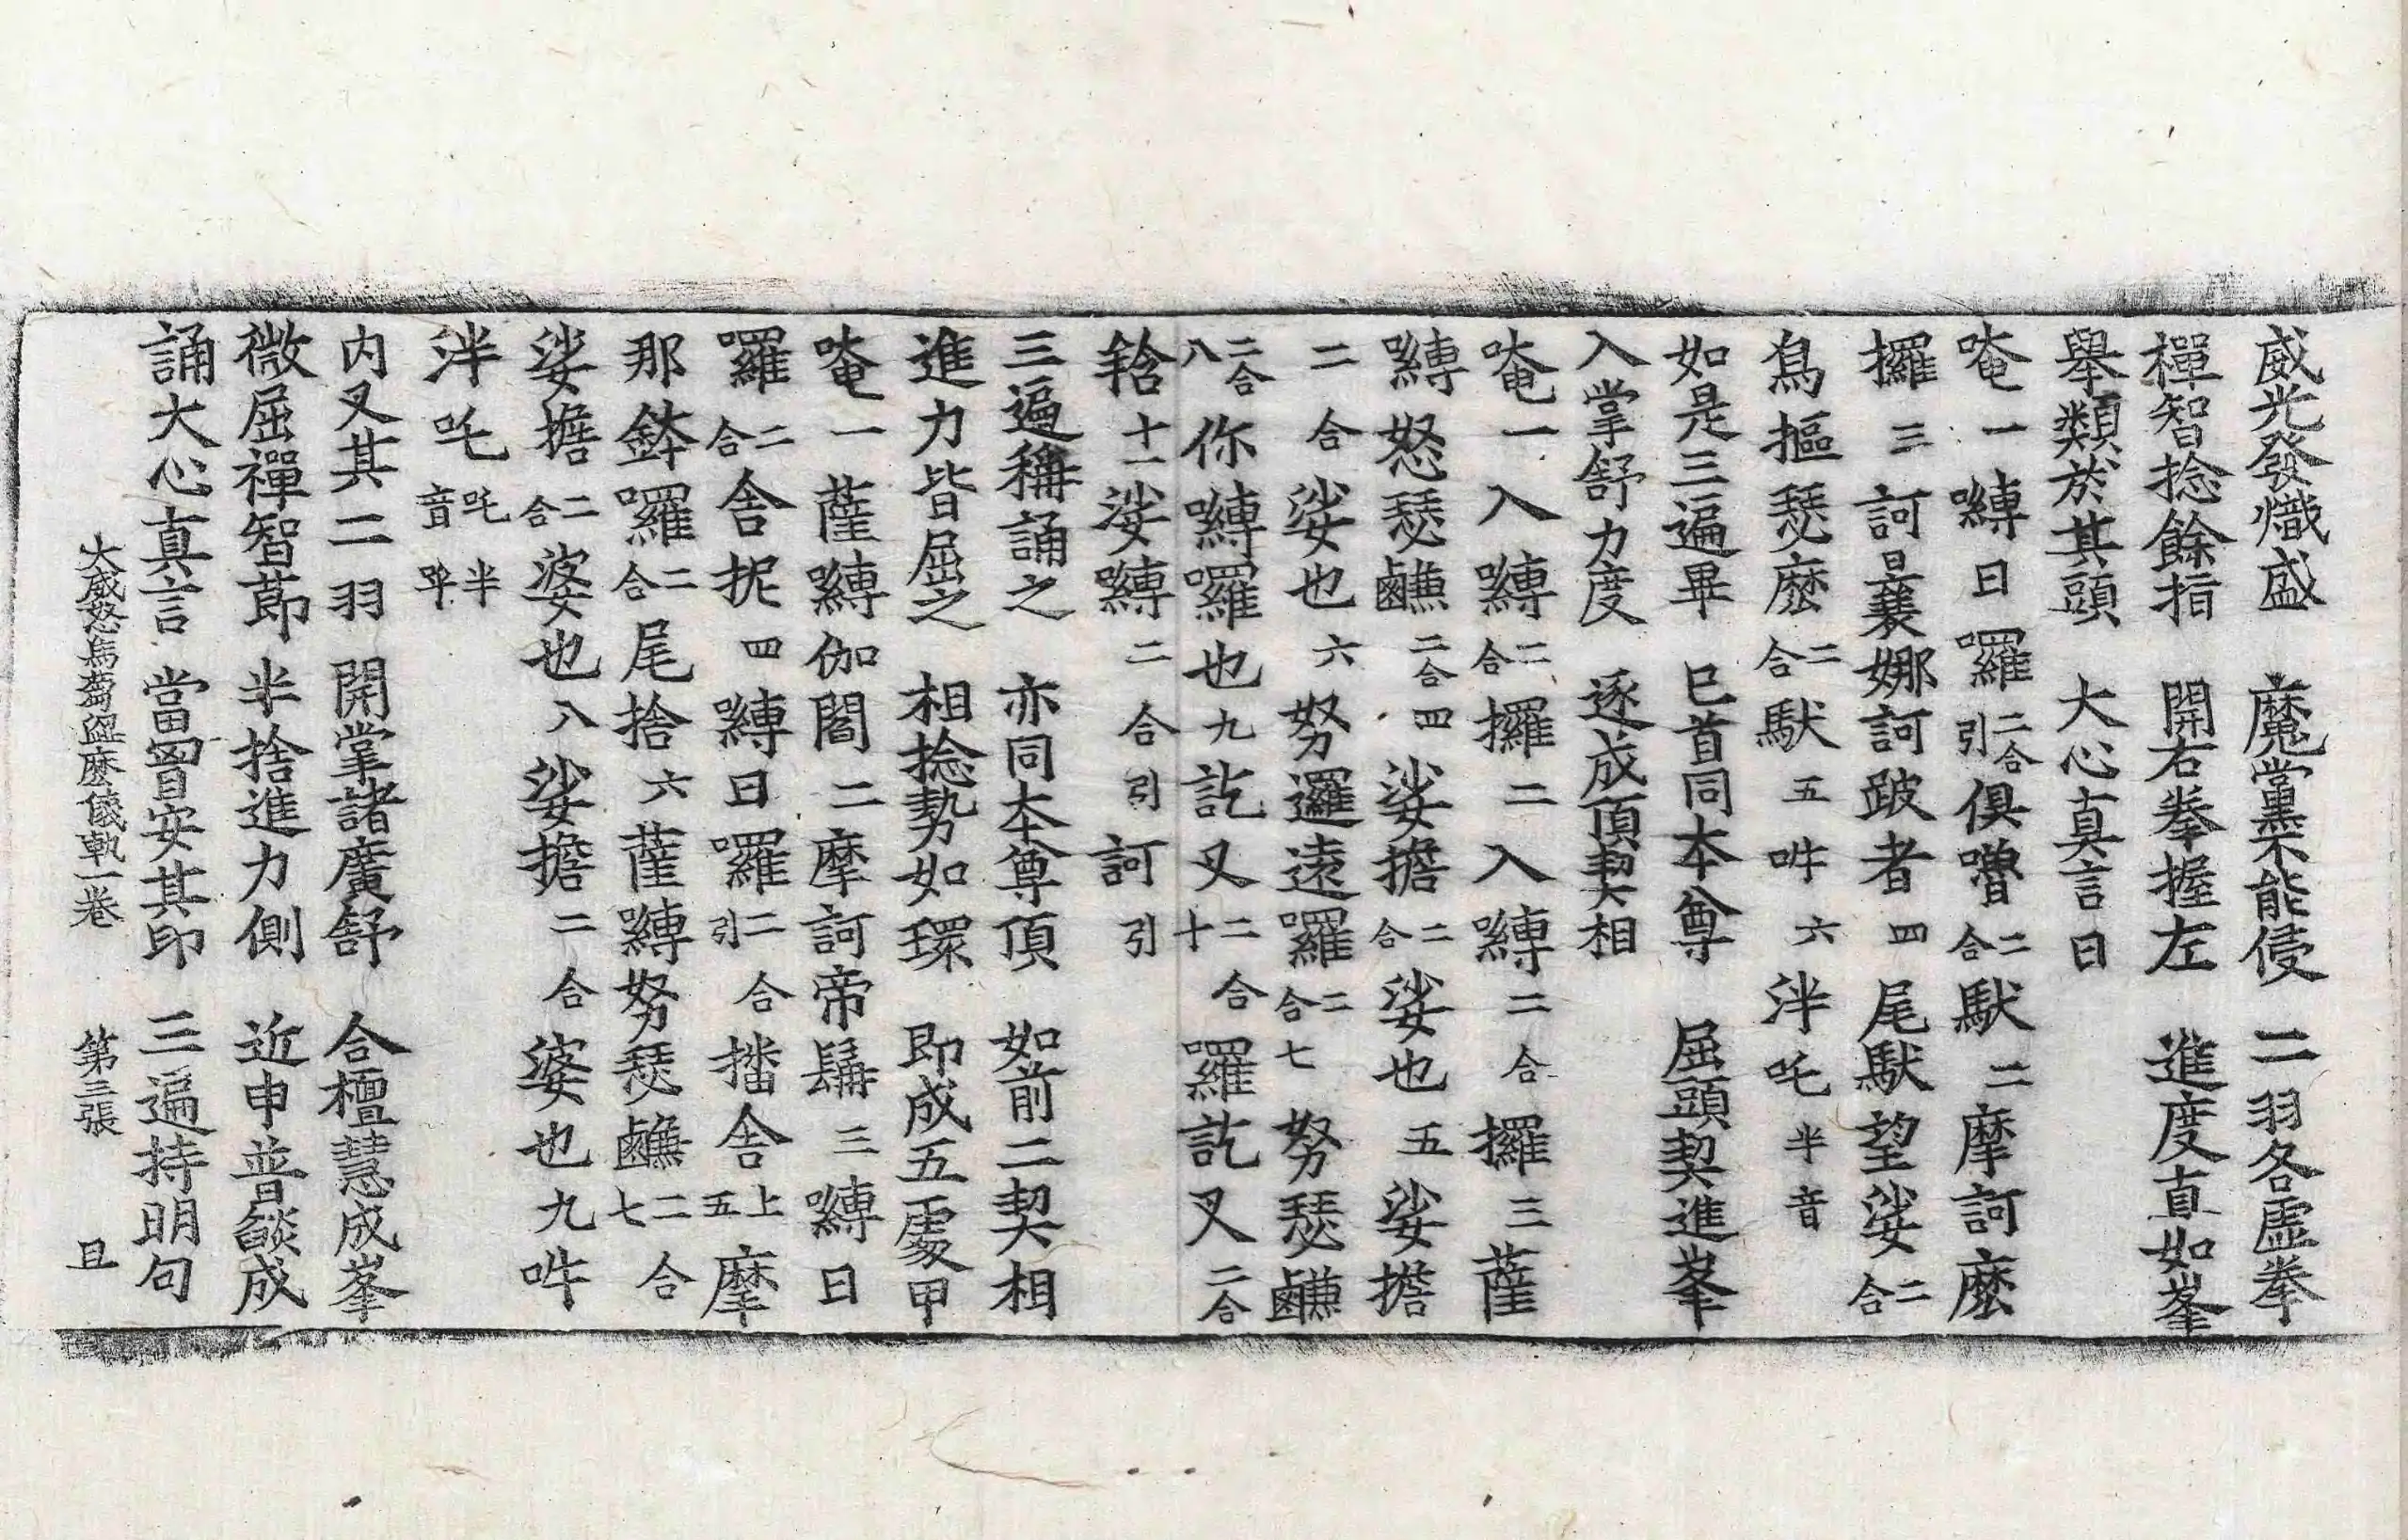 威光發熾盛　魔黨不能侵　二羽各虛拳
禪智捻餘指　開右拳握左　進度直如峯
舉類於其頭　大心真言曰
唵一嚩日囉二合引俱嚕二合馱二摩訶麼
攞三訶曩娜訶跛者四尾馱望娑二合
鳥摳瑟麼二合馱五吽六泮吒半音
如是三遍畢　已首同本尊　屈頭契進峯
入掌舒力度　逐成頂契相
唵一入嚩二合攞二入嚩二合攞三薩
嚩怒瑟鹻二合四娑擔二合娑也五娑擔
二合娑也六努邏遠囉二合七努瑟鹻
二合八你嚩囉也九訖叉十二合囉訖叉二合
𨋢十一娑嚩二合引訶引
三遍稱誦之　亦同本尊頂　如前二契相
進力皆屈之　相捻勢如環　即成五處甲
唵一薩嚩伽閻二摩訶帝䯱三嚩日
囉二合舍抳四嚩日囉二合引播舍上五摩
那鉢囉二合尾捨六薩嚩努瑟鹻二合七
娑擔二合婆也八娑擔二合婆也九吽
泮吒吒半音呼
內叉其二羽　開掌諸廣舒　合檀慧成峯
微屈禪智節　半捨進力側　近申普焰成
誦大心真言　當𮌎安其印　三遍持明句
大威怒烏芻澀麼儀軌一卷　第三張　且